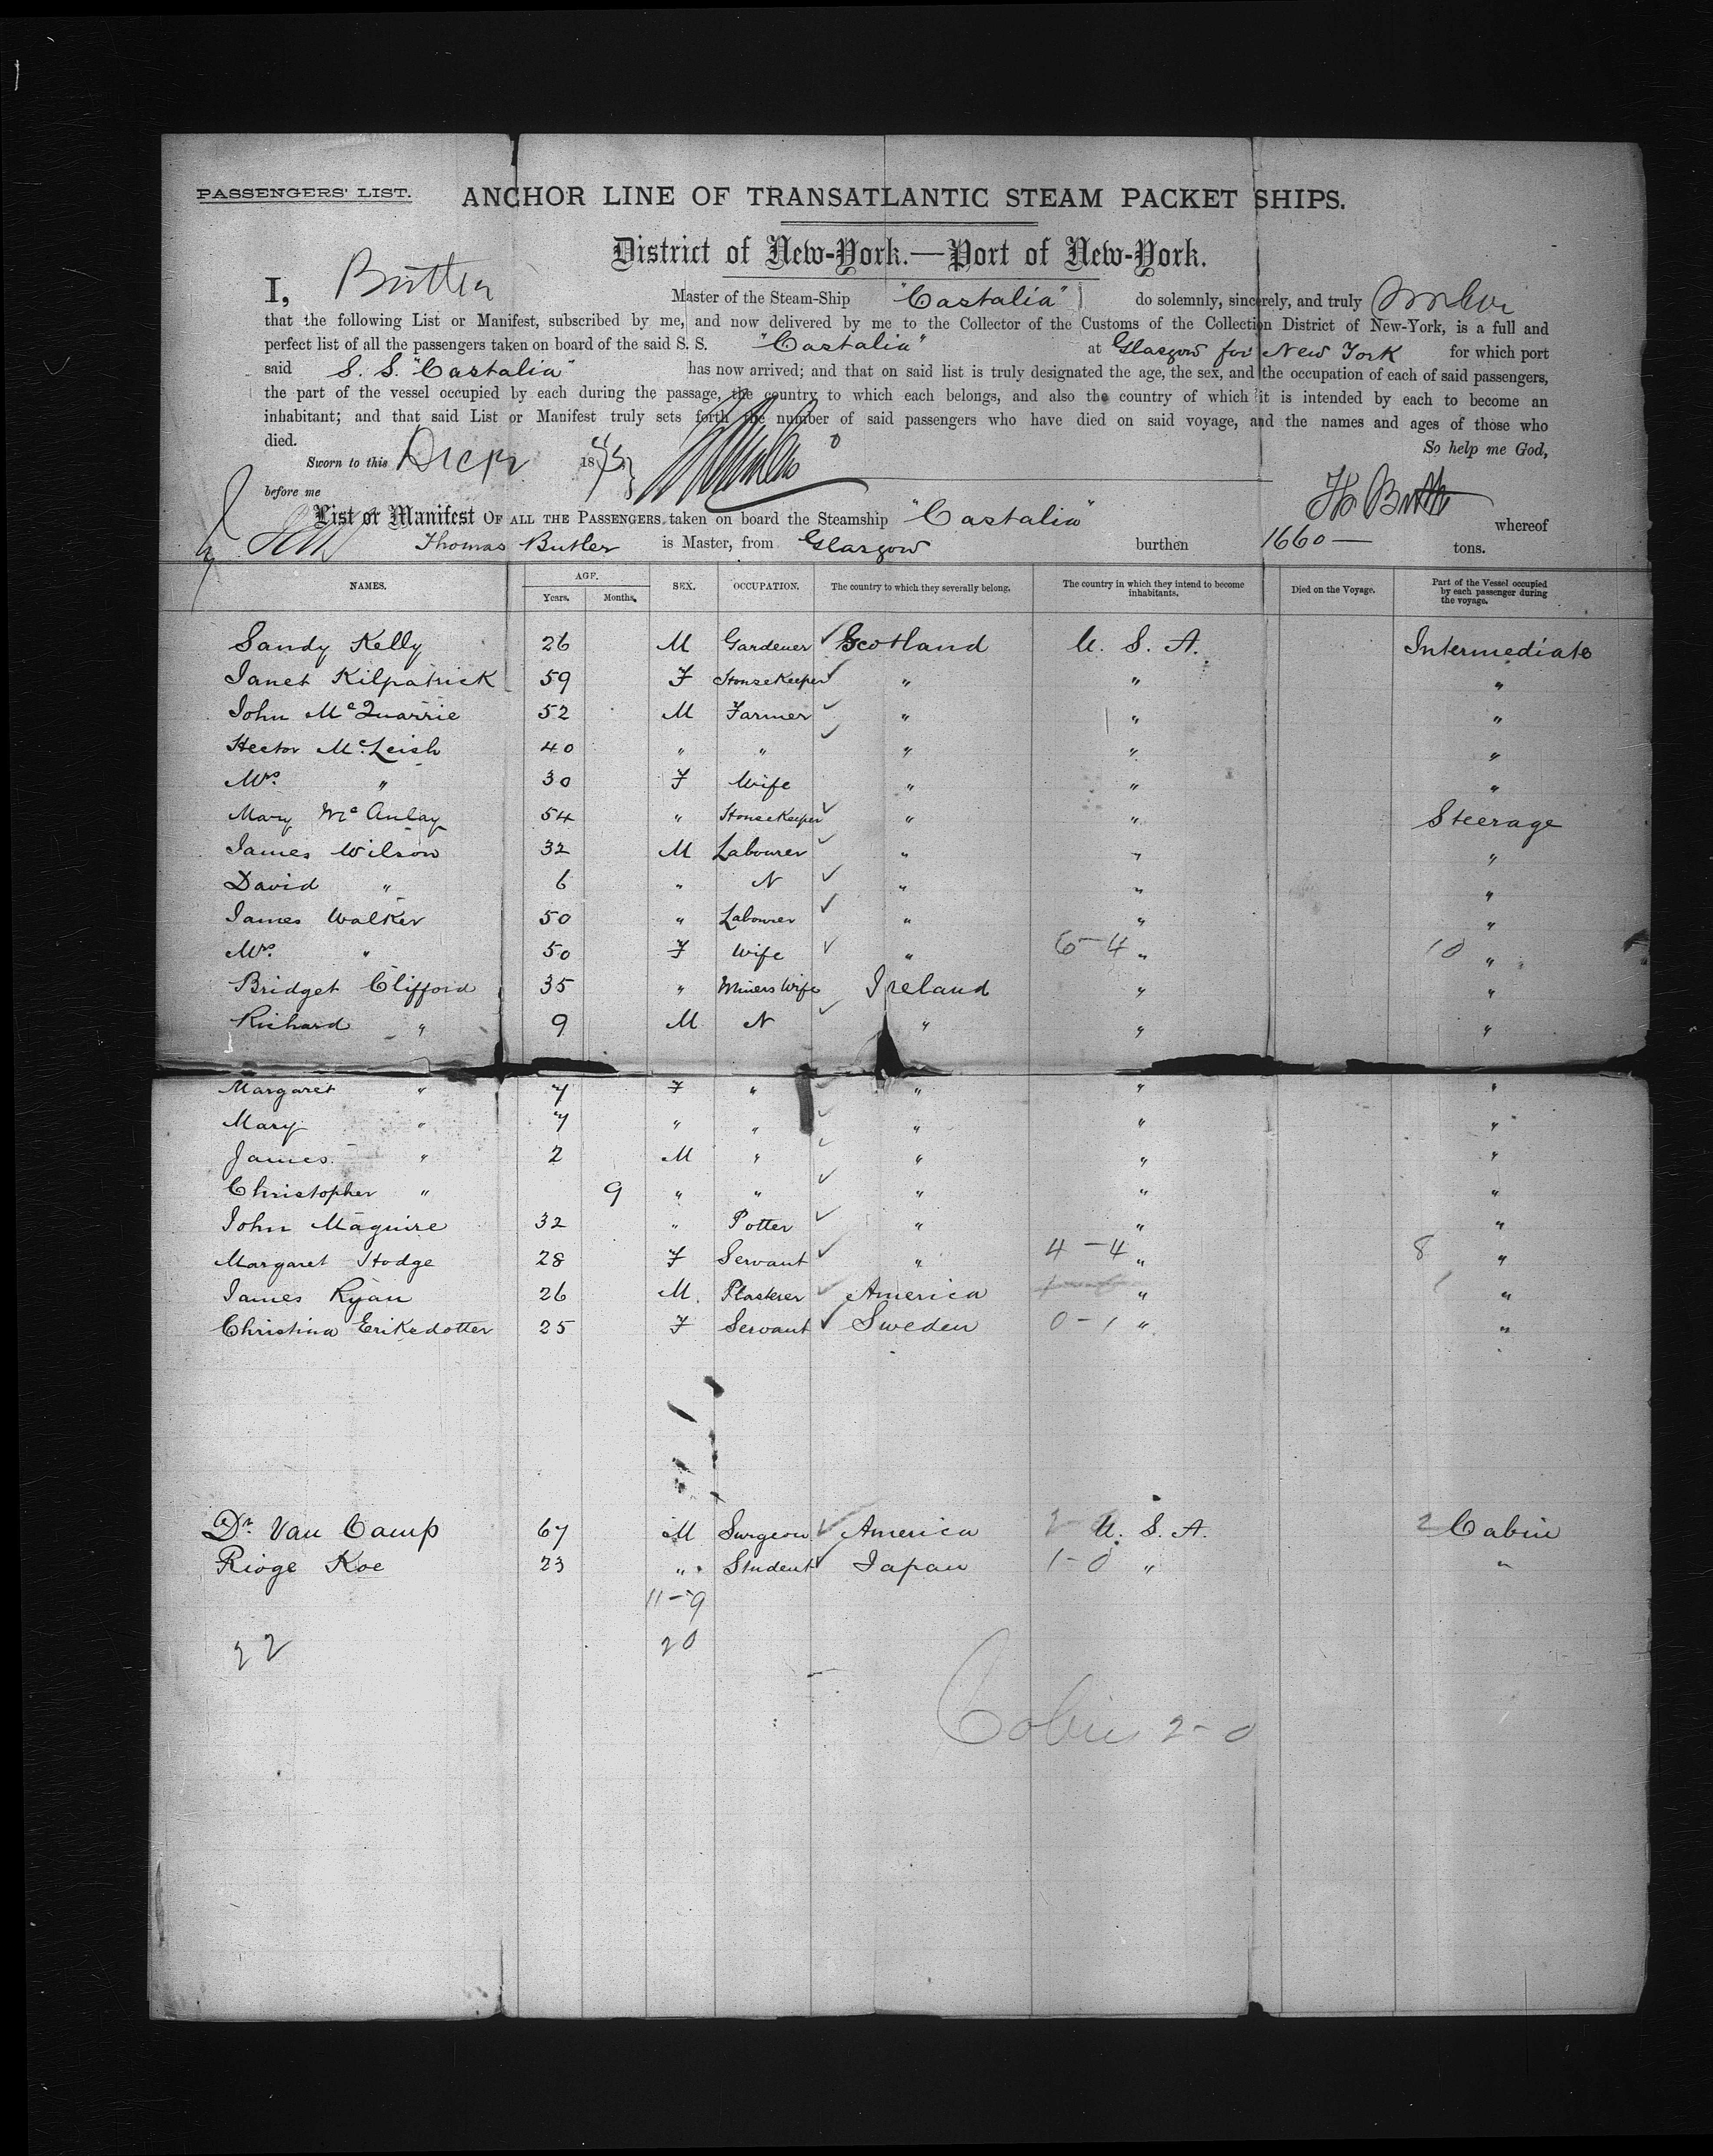 PASSENGERS' LIST. ANCHOR LINE OF TRANSATLANTIC STEAM PACKET SHIPS.
District of New-York.—Port of New-York.
I, Butler Master of the Steam-Ship "Castalia" do solemnly, sincerely, and truly
that the following List or Manifest, subscribed by me, and now delivered by me to the Collector of the Customs of the Collection District of New-York, is a full and
perfect list of all the passengers taken on board of the said S. S. "Castalia" at Glasgow for New York for which port
said S. S. "Castalia" has now arrived; and that on said list is truly designated the age, the sex, and the occupation of each of said passengers,
the part of the vessel occupied by each during the passage, the country to which each belongs, and also the country of which it is intended by each to become an
inhabitant; and that said List or Manifest truly sets forth the number of said passengers who have died on said voyage, and the names and ages of those who
died. So help me God,
Sworn to this 18
before me
List or Manifest OF ALL THE PASSENGERS taken on board the Steamship "Castalia" whereof
Thomas Butler is Master, from Glasgow burthen 1660— tons.
NAMES. AGE. Years. Months. SEX. OCCUPATION. The country to which they severally belong. The country in which they intend to become inhabitants. Died on the Voyage. Part of the Vessel occupied by each passenger during the voyage.
Sandy Kelly 26 M Gardener Scotland U. S. A. Intermediate
Janet Kilpatrick 59 F HouseKeeper " " "
John McQuarrie 52 M Farmer " " "
Hector McLeish 40 " " " " "
Mrs. " 30 F Wife " " "
Mary McAulay 54 " HouseKeeper " " Steerage
James Wilson 32 M Labourer " " "
David " 6 " N " " "
James Walker 50 " Labourer " " "
Mrs. " 50 F Wife " 6-4 " 10 "
Bridget Clifford 35 " Miners Wife Ireland " "
Richard " 9 M N " " "
Margaret " 7 F " " " "
Mary " 7 " " " " "
James " 2 M " " " "
Christopher " 9 " " " " "
John Maguire 32 " Potter " " "
Margaret Hodge 28 F Servant " 4-4 " 8 "
James Ryan 26 M. Plasterer America " "
Christina Eriksdotter 25 F Servant Sweden 0-1 " "
Dr. Van Camp 67 M Surgeon America U. S. A. 2 Cabin
Rioge Koe 23 " Student Japan 1-0 " "
11-9
22 20
Cabin 2-0